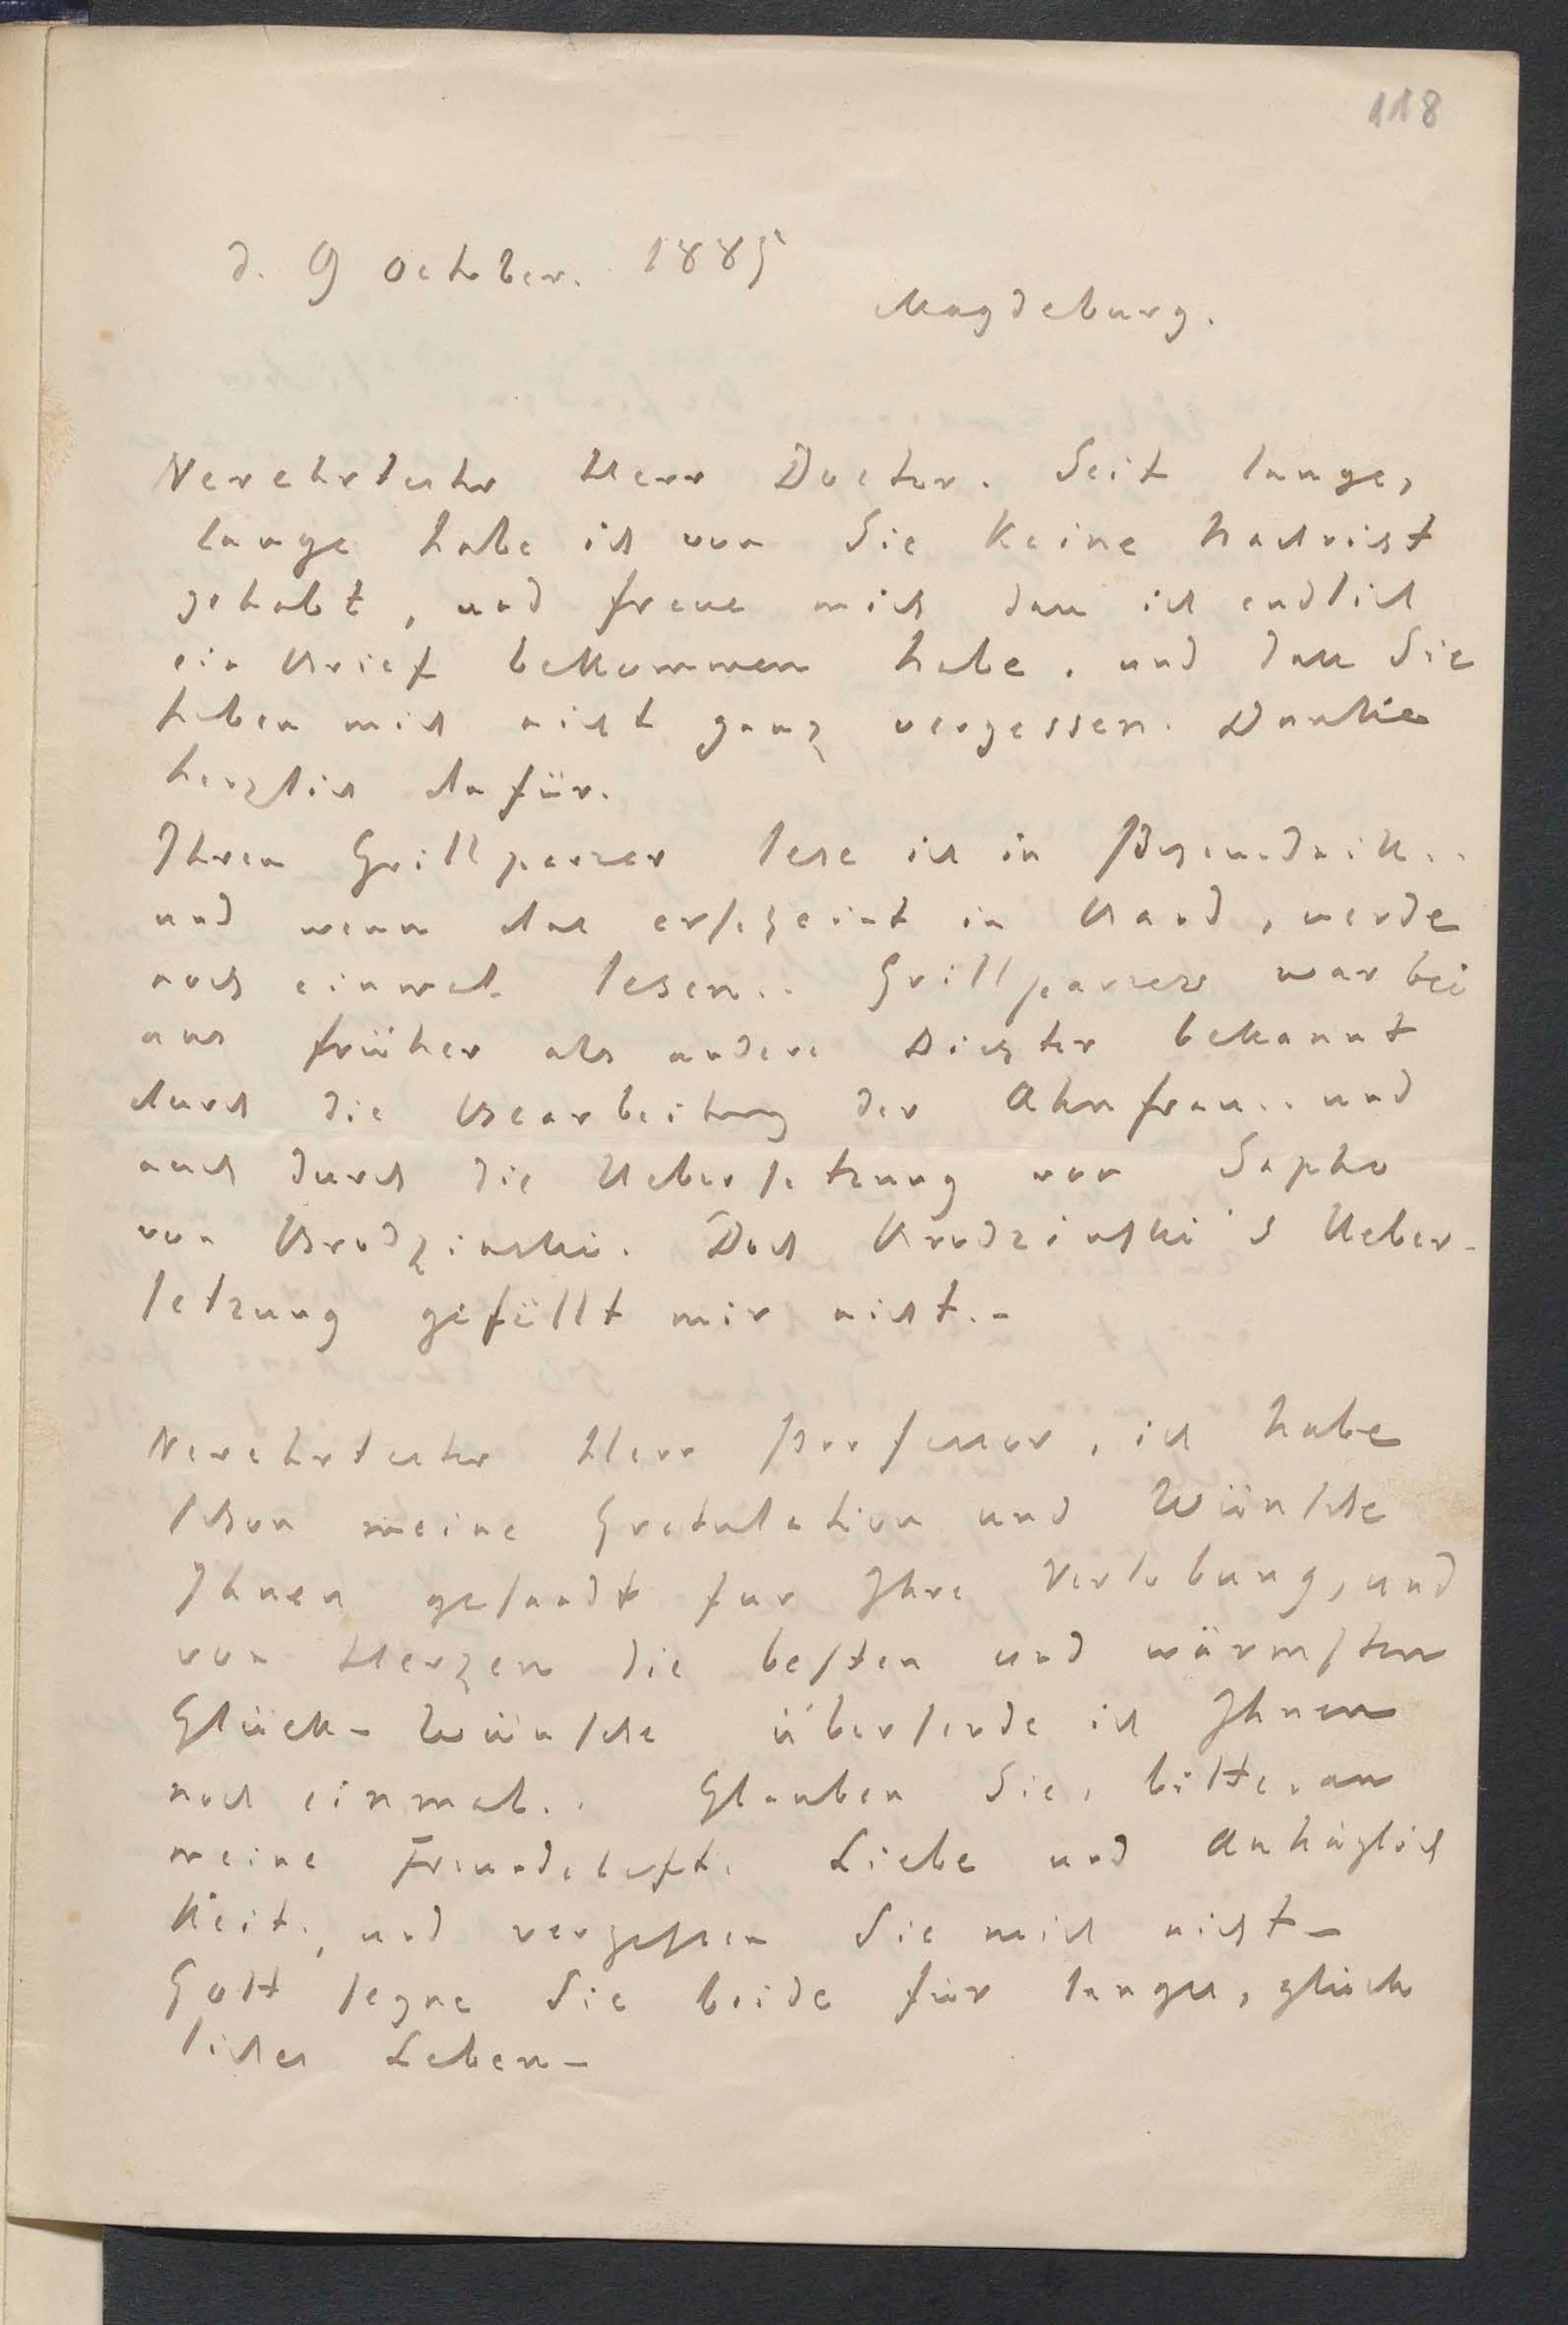 118
d. 9 october. 1885
Magdeburg.
Verehrtester Herr Doctor. Seit lange,
lange habe ich von Sie keine Nachricht
gehabt, und freue mich dass ich endlich
ein Brief bekommen habe. und dass Sie
haben mich nicht ganz vergessen. Danke
herzlich dafür.
Ihren Grillparzer lese ich in
und wenn das erscheint in Band, werde
noch einmal lesen.. Grillparzer war bei
uns früher als andere Dichter bekannt
durch die Bearbeitung der Ahnfrau.. und
auch durch die Uebersetzung von Sapho
von Brodzinski. Doch Brodzinski's Ueber-
setzung gefällt mir nicht.-
Verehrtester Herr Professor, ich habe
schon meine Gratulation und Wünsche
Ihnen gesandt fur Ihre Verlobung, und
von Herzen die besten und wärmsten
Glück- Wünsche übersende ich Ihnen
noch einmal.. Glauben Sie, bitte, an
meine Freundschaft. Liebe und Anhäglich
keit, und vergessen Sie mich nicht-
Gott segne Sie beide für langes, glück
liches Leben-